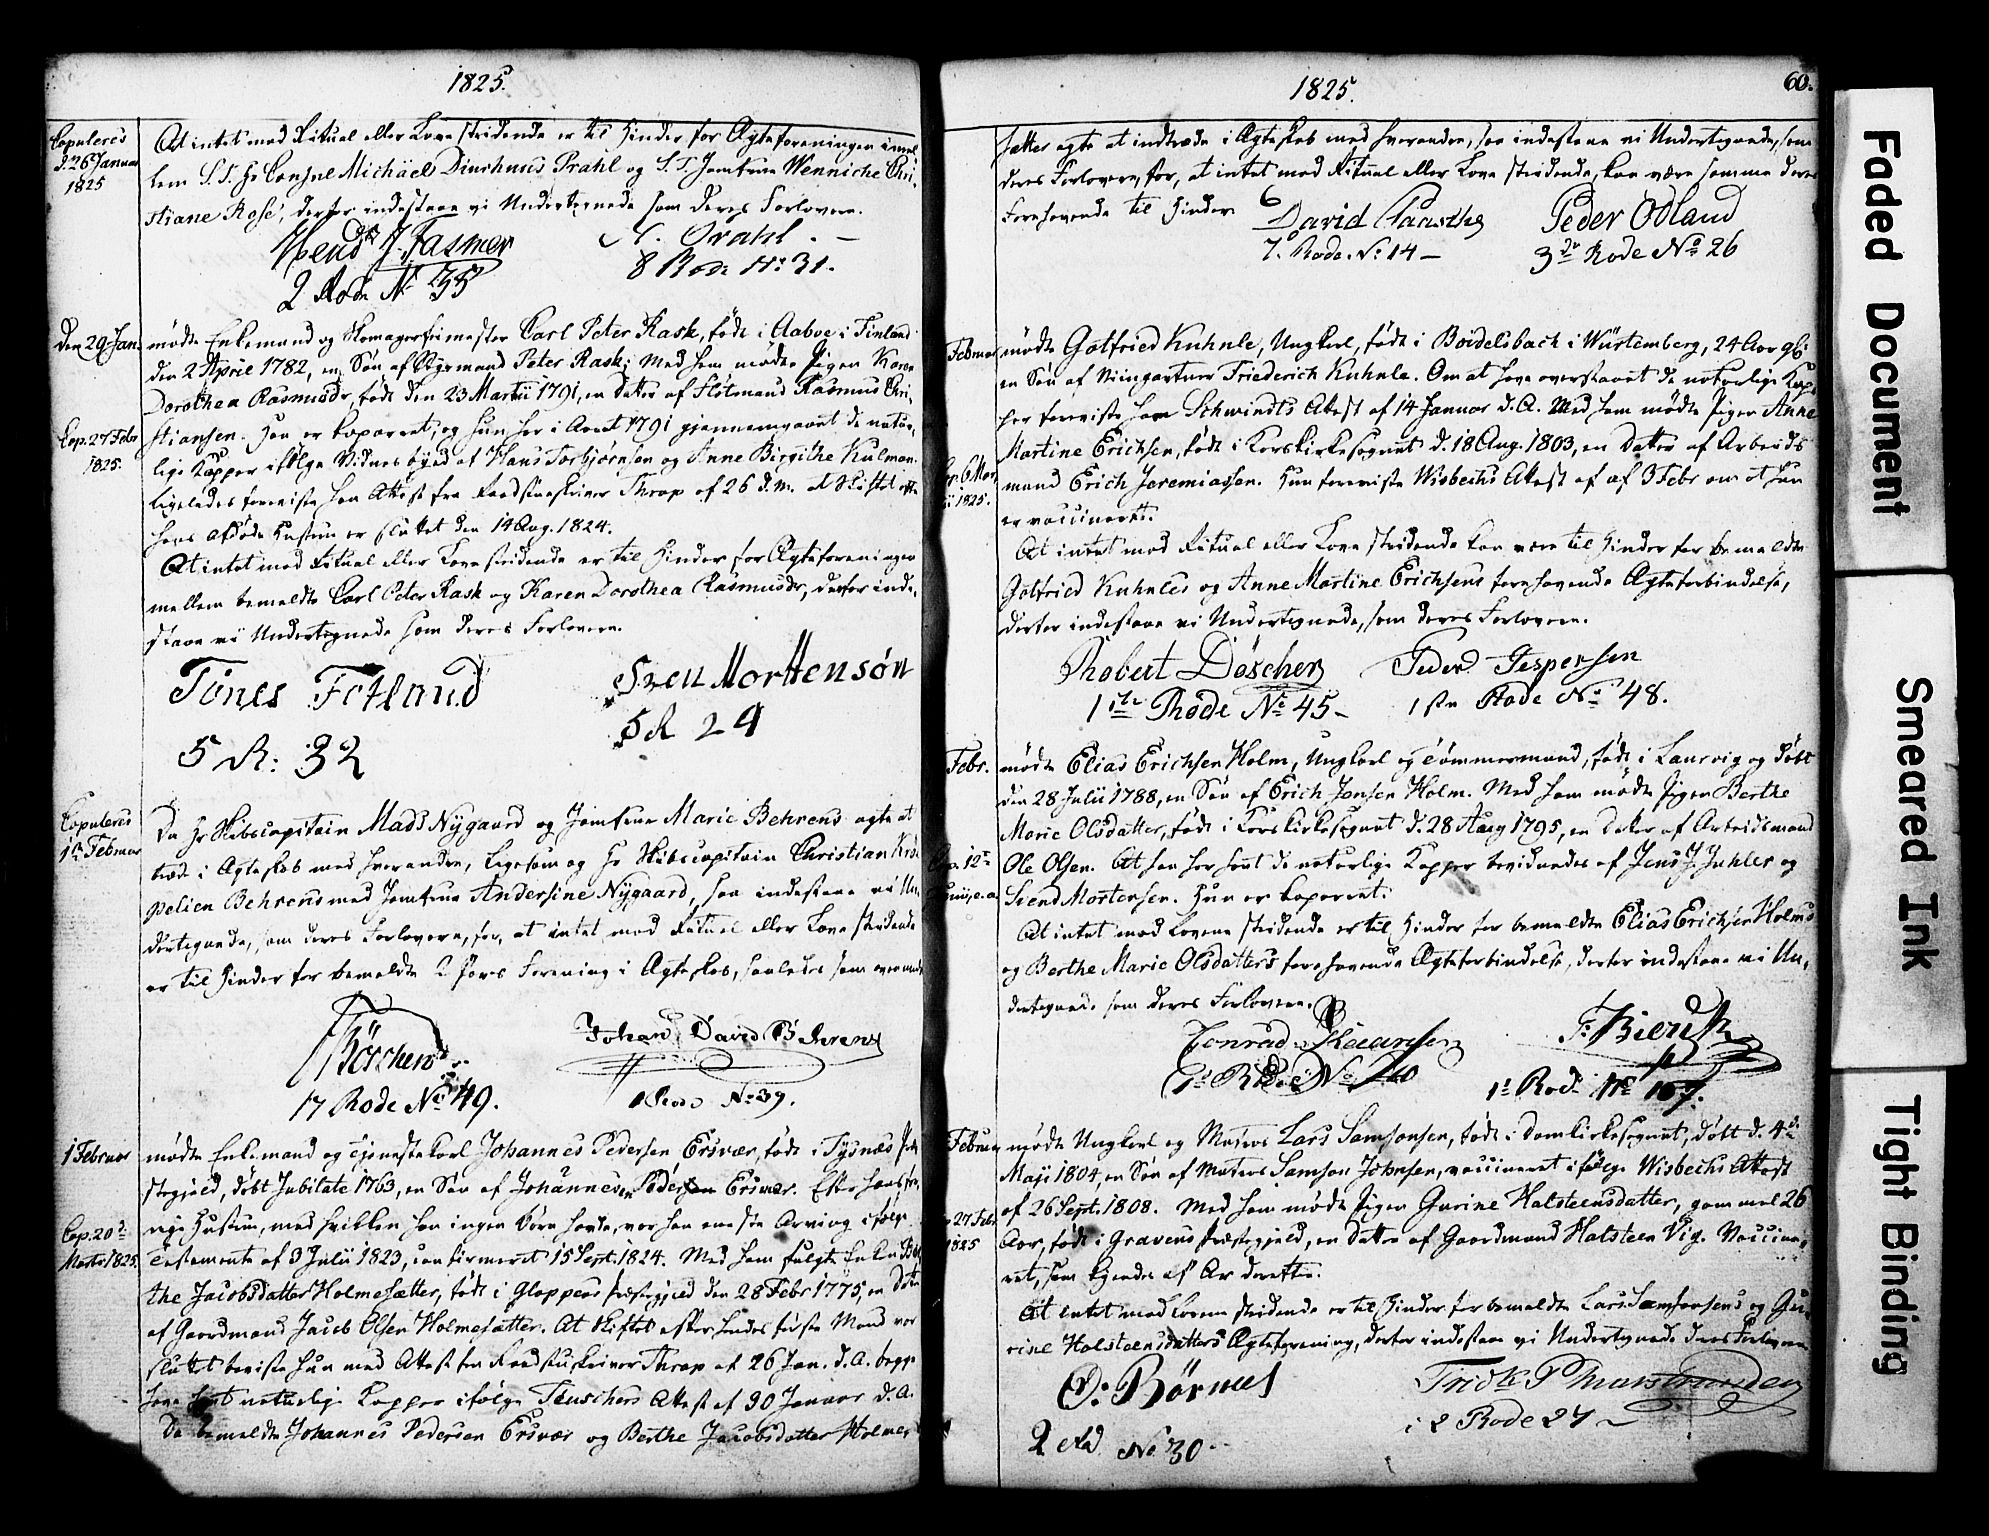 1825.
Copuleres
d. 26 Januar
1825
At intet mod Ritual eller Love stridende er til Hinder for Ægteforeningen imel
lem S. T. Hr Consul Michäel Dinchuus Prahl og S. T. Jomfrue Wenniche Chri,
stiane Rose, derfor indestaae vi Undertegnede som deres Forlovere.
Hend J. Fasmer
2 Rode No 35
A. Prahl
8 Rode No 31.
Den 29 Jan.
mødte Enkemand og Skomagersvimester Carl Peter Rask, født i Aaboe i Finland
den 2 April 1782, en Søn af Styrmand Peter Rask; Med ham mødte Pigen Karen
Dorothea Rasmusdr, født den 23 Martii 1791, en Datter af Flötmand Rasmus Chri,
Cop. 27 Febr
1825.
stiansen. Han er koparret, og hun har i Aaret 1791 gjennemgaaet de natur,
lige Kopper ifølge Vidnesbyrd af Hans Torbjørnsen og Anne Birgithe Kulman.
Ligeledes foreviste han Attest fra Raadstueskriver Thrap af 26 d. M. at Skiftet efter
hans afdøde Hustru er sluttet den 14 Aug. 1824.
At intet mod Ritual eller Love stridende er til Hinder for Ægteforeningen
mellem bemeldte Carl Peter Rask og Karen Dorothea Rasmusdr, derfor inde,
staae vi Undertegnede som deres Forlovere.
Tönes Fotland
5 R: 32
Sven Morttensøn
5 R 24
Copuleres
1ste Februar
Da Hr Skibscapitain Mads Nygaard og Jomfrue Marie Behrens agte at
træde i Ægteskab med hverandre, ligesom og Hr Skibscapitain Christian Krö
pelien Behrens med Jomfrue Andersine Nygaard, saa indestaae vi Un,
dertegnede, som deres Forlovere, for, at intet mod Ritual eller Love stridende
er til Hinder for bemeldte 2 Pars Forening i Ægteskab, saaledes som ovenmeldt
Börchen
17 Rode No 49.
Johan David Behrens
1 Rode No 39.
1 Februar
mødte Enkemand og Tjenestekarl Johannes Pedersen Ersvær, født i Tysnæs Præ
stegjeld, døbt Jubilate 1763, en Søn af Johannesen Pedersen Ersvær. Efter hans for,
Cop. 20de
Marts 1825.
rige Hustru, med hvilken han ingen Børn havde, var han eneste Arving ifølge
Testamente af 3 Julii 1823, confirmeret 15 Sept. 1824. Med ham fulgte Enken Ber
the Jacobsdatter Holmesætter, født i Gloppens Præstegjeld den 28 Febr 1775, en Datter
af Gaardmand Jacob Olsen Holmesætter. At Skiftet efter hendes første Mand var
sluttet beviste hun med Attest fra Raadstueskriver Thrap af 26 Jan. d. A. begge
have havt naturlige Kopper ifølge Teuschers Attest af 30 Januar d. A.
Da bemeldte Johannes Pedersen Ersvær og Berthe Jacobsdatter Holme,
1825.
60.
sætter agte at indtræde i Ægteskab med hverandre, saa indestaae vi Undertegnede, som
deres Forlovere, for, at intet mod Ritual eller Love stridende, kan være samme deres
Forehavende til Hinder.
David Paasche
7. Rode. No 14 –
Peder Odland
3die Rode No 26
Februar
mødte Gotfried Kuhnle, Ungkarl, født i Boidelsbach i Würtemberg, 24 Aar gl.
en Søn af Wiingartner Friederich Kuhnle. Om at have overstaaet de naturlige Kopper
her foreviste han Schwindts Attest af 14 Januar d. A. Med ham mødte Pigen Anne
Martine Erichsen, født i Korskirkesognet d. 18 Aug. 1803, en Datter af Arbeids
6 Mar,
1825.
mand Erich Jeremiassen. Hun foreviste Wisbechs Attest af af 3 Febr om at hun
er vaccineret.
At intet mod Ritual eller Love stridende kan være til Hinder for bemeldte
Gotfried Kuhnles og Anne Martine Erichsens forehavende Ægteforbindelse,
derfor indestaae vi Undertegnede, som deres Forlovere.
Robert Döscher
1ste Rode No 45 –
Peder Jespersen
1ste Rode No 48.
Febr.
mødte Elias Erichsen Holm, Ungkarl og Tömmermand, født i Laurvig og døbt
den 28 Julii 1788, en Søn af Erich Jensen Holm. Med ham mødte Pigen Berthe
Marie Olsdatter, født i Korskirkesognet d. 28 Aug 1795, en Datter af Arbeidsmand
12te
Junii, e. a.
Ole Olsen. At han har havt de naturlige Kopper bevidnedes af Jens J. Juhler og
Svend Mortensen. Hun er koparret.
At intet mod Lovene stridende er til Hinder for bemeldte Elias Erichsen Holms
og Berthe Marie Olsdatters forehavende Ægteforbindelse, derfor indestaae vi Un,
dertegnede som deres Forlovere.
Conrad Klaussen
1s Rode No 240
1s Rode No 167.
Februar
mødte Ungkarl og Matros Lars Samsonsen, født i Domkirkesognet, døbt d. 4de
Maji 1804, en Søn af Matros Samson Johnsen, vaccineret ifølge Wisbechs Attest
af 26 Sept. 1808. Med ham mødte Pigen Gurine Halsteensdatter, gammel 26
27 Febr
1825
Aar, født i Gravens Præstegjeld, en Datter af Gaardmand Halsteen Vig. Vaccine,
ret, som kjendes af Ar derefter.
At intet mod Lovene stridende er til Hinder for bemeldte Lars Samsonsens og Gu,
rine Halsteensdatters Ægteforening, derfor indestaae vi Undertegnede deres Forlovere
O. Börnes
2 Rod No 30.
Fridk P
i 2 Rode 27
Faded Document
Smeared Ink
Tight Binding